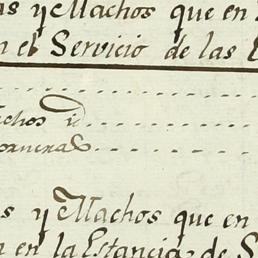 as y Machos que en
n el Servicio de las
chos id
orneras
s y Machos que en
n en la Estancia de S